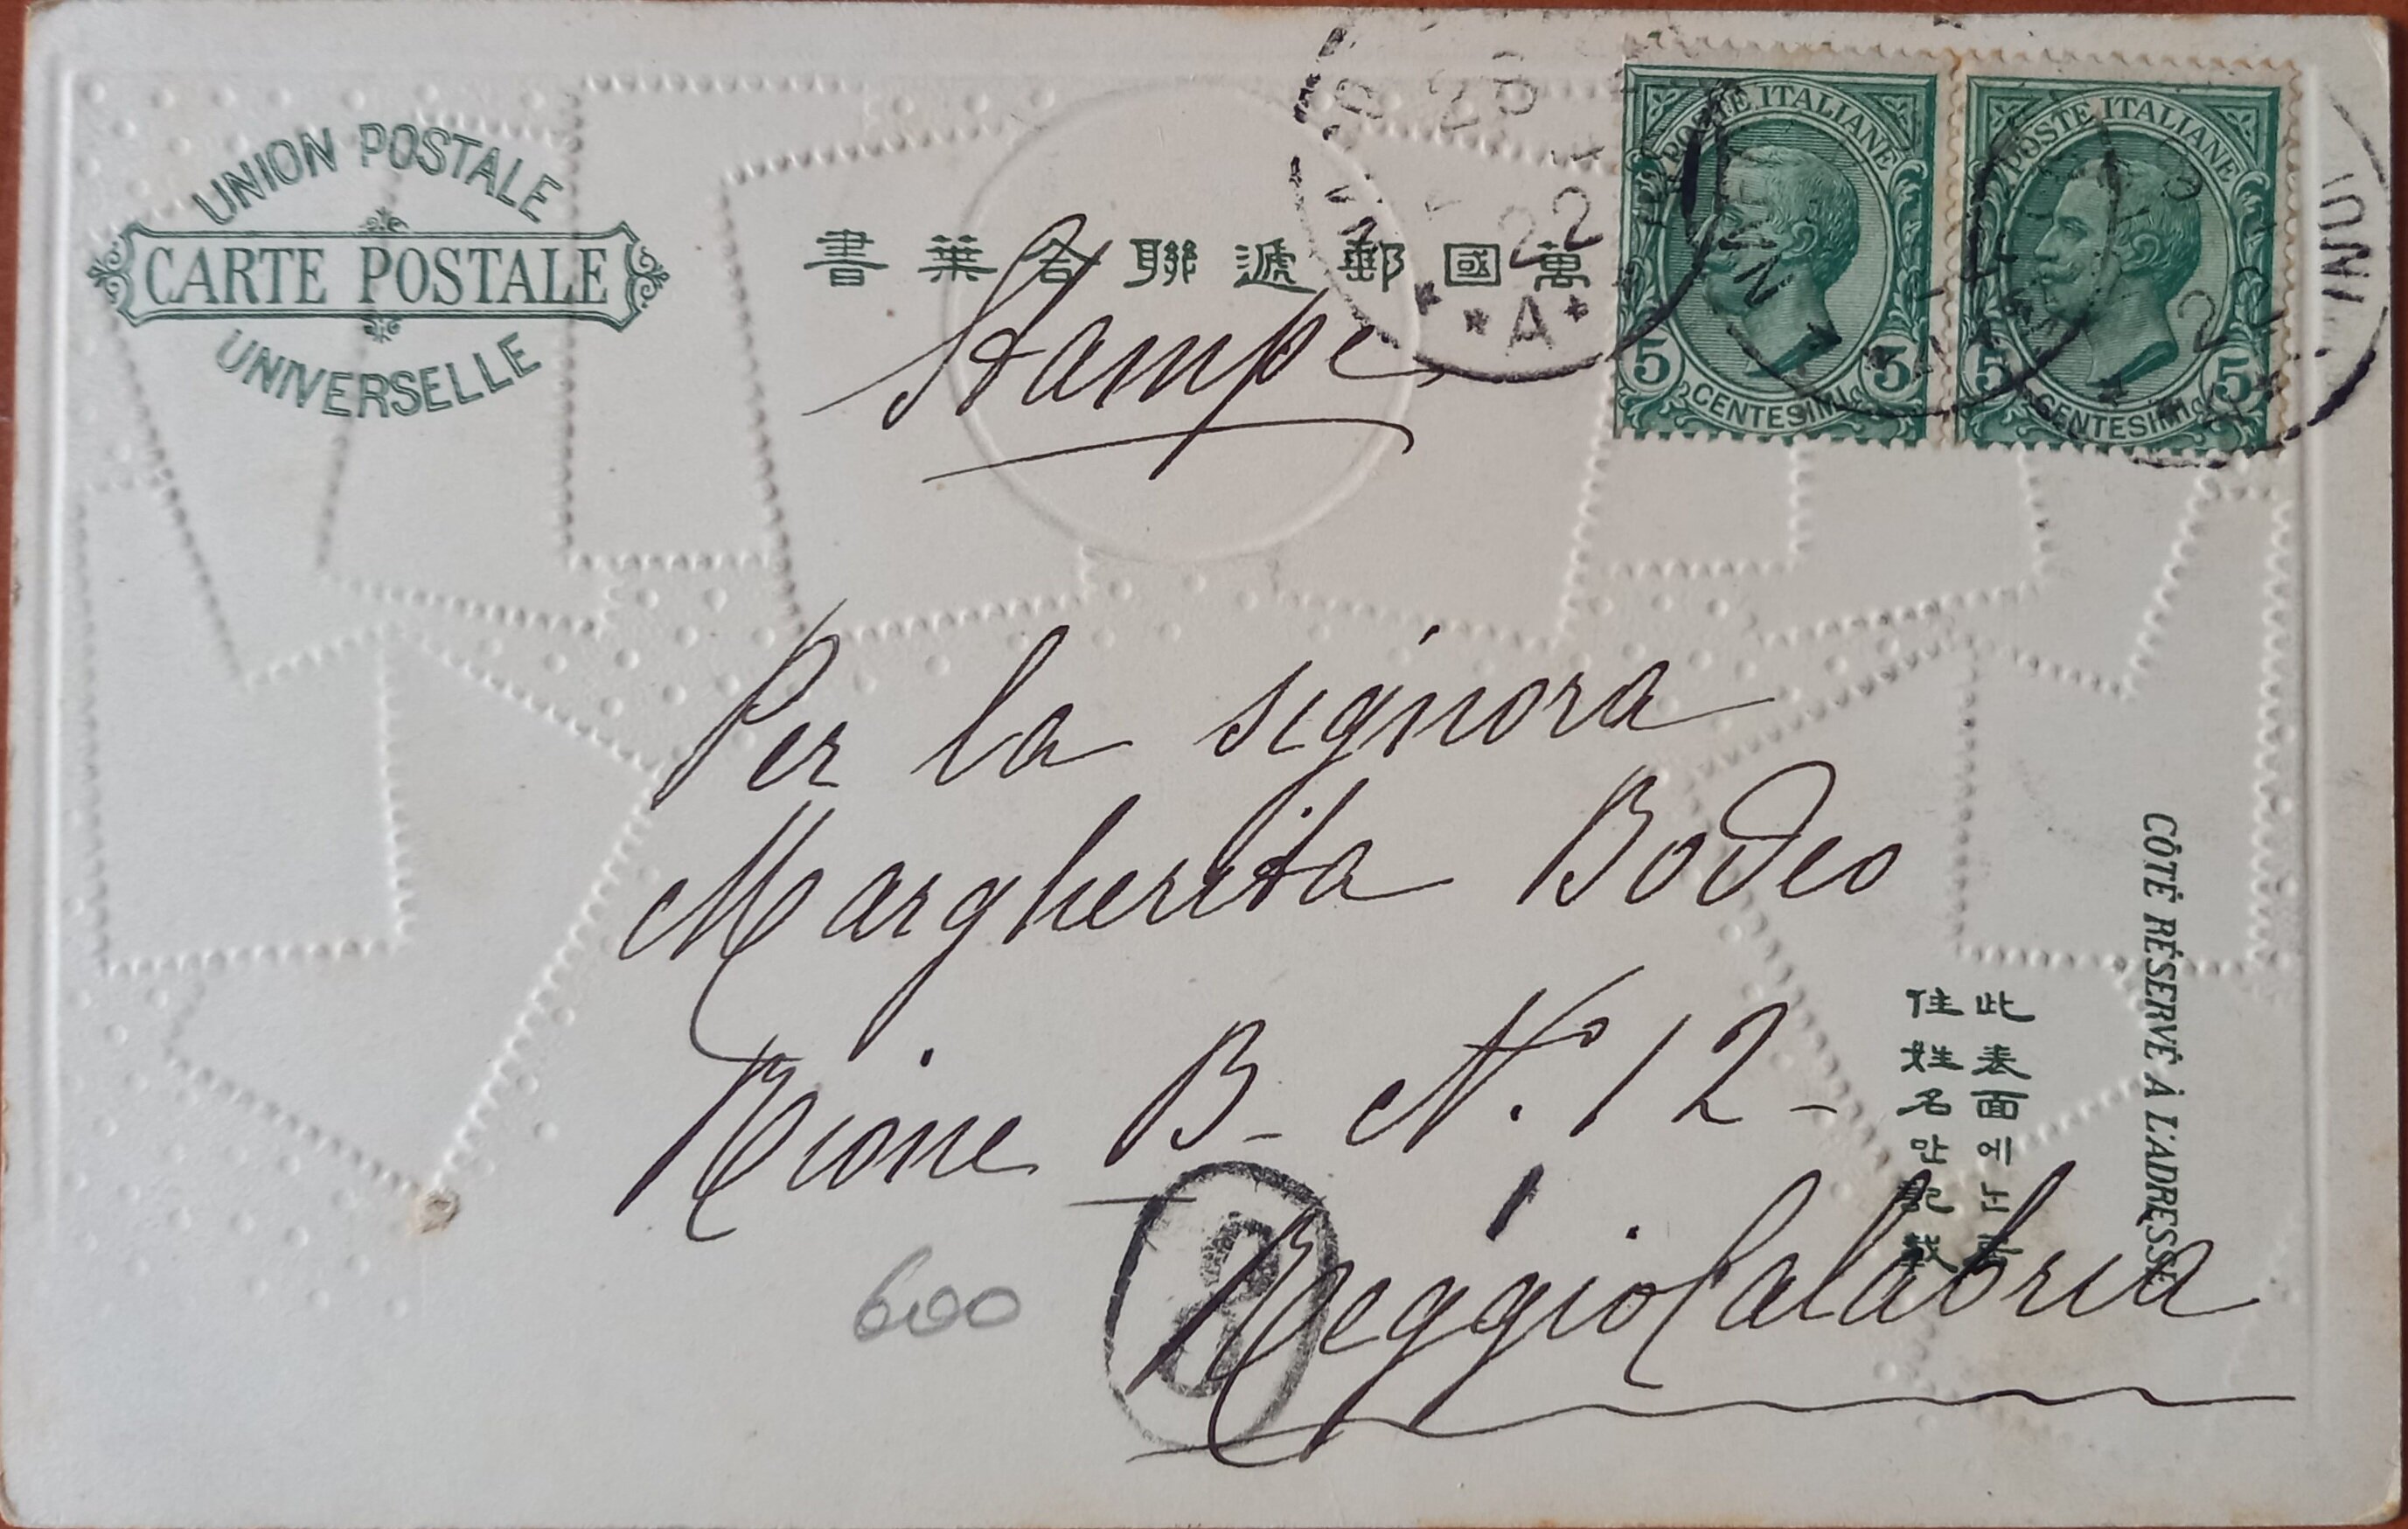 UNION POSTALE
CARTE POSTALE
UNIVERSELLE
萬國郵遞聯合葉書
28
22
* * A *
POSTE ITALIANE
5 5
CENTESIMI
POSTE ITALIANE
5 5
CENTESIMI
Stampe
Per la signora
Margherita Bodeo
Rione B- N.º 12-
Reggio Calabria
此表面에ᄂᆞᆫ居
住姓名만記載
CÔTÉ RÉSERVÉ À L'ADRESSE
600
8